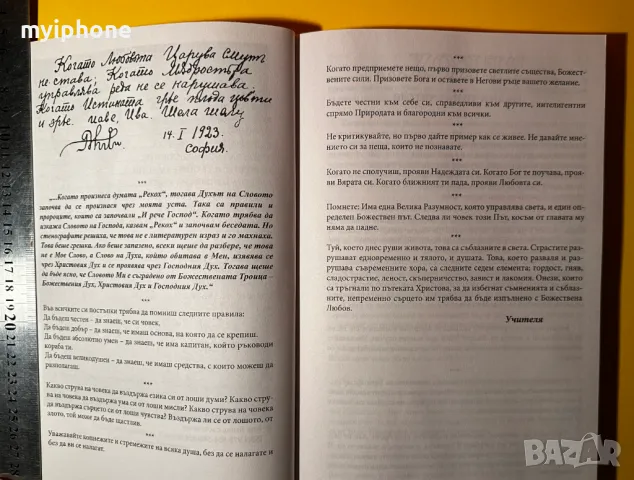 myiphone
Когато Любовта Царува Смутъ
не става; Когато Мѫдростьта
управлява реда не се нарушава.
Когато Истината грѣе плода цъвти
и зрѣе.
14. I 1923.
София.
***
„...Когато произнеса думата „Рекох“, тогава Духът на Словото
започва да се произнася чрез моята уста. Така са правили и
пророците, които са започвали „И рече Господ“. Когато трябва да
изкажа Словото на Господа, казвам „Рекох“ и започвам беседата. Но
стенографите решиха, че това не е литературен израз и го махнаха.
Това беше грешка. Ако беше запазено, всеки щеше да разбере, че това
не е Мое Слово, а Слово на Духа, който обитава в Мен, изявява се
чрез Христовия Дух и се проявява чрез Господния Дух. Тогава щеше
да бъде ясно, че Словото Ми е съградено от Божествената Троица –
Божествения Дух, Христовия Дух и Господния Дух.“
***
Във всичките си постъпки трябва да помниш следните правила:
Да бъдеш честен – да знаеш, че си човек.
Да бъдеш добър – да знаеш, че имаш основа, на която да се крепиш.
Да бъдеш абсолютно умен – да знаеш, че има капитан, който ръководи
кораба ти.
Да бъдеш великодушен – да знаеш, че имаш средства, с които можеш да
разполагаш.
***
Какво струва на човека да въздържа езика си от лоши думи? Какво стру-
ва на човека да въздържа ума си от лоши мисли? Какво струва на човека
да въздържа сърцето си от лоши чувства? Въздържа ли се от лошото, от
злото, той може да бъде щастлив.
***
Уважавайте копнежите и стремежите на всяка душа, без да се налагате и
без да ви се налагат.
***
Когато предприемете нещо, първо призовете светлите същества, Божест-
вените сили. Призовете Бога и оставете в Негови ръце вашето желание.
***
Бъдете честни към себе си, справедливи към другите, интелигентни
спрямо Природата и благородни към всички.
***
Не критикувайте, но първо дайте пример как се живее. Не давайте мне-
нието си за неща, които не познавате.
***
Когато не сполучиш, прояви Надеждата си. Когато Бог те поучава, проя-
ви Вярата си. Когато ближният ти пада, прояви Любовта си.
***
Помнете: Има една Велика Разумност, която управлява света, и един оп-
ределен Божествен път. Следва ли човек този Път, косъм от главата му
няма да падне.
***
Туй, което днес руши животи, това са съблазните в света. Страстите раз-
рушават едновременно и тялото, и душата. Това, което развали и разру-
шава съвременните хора, са следните седем елемента: гордост, гняв,
сладострастие, лесниво, сквернословие, завист и лакомия. Онези, които
са тръгнали по пътеката Христова, за да избегнат съмненията и съблаз-
ните, непременно сърцето им трябва да бъде изпълнено с Божествена
Любов.
Учителя
BAZAR
bg